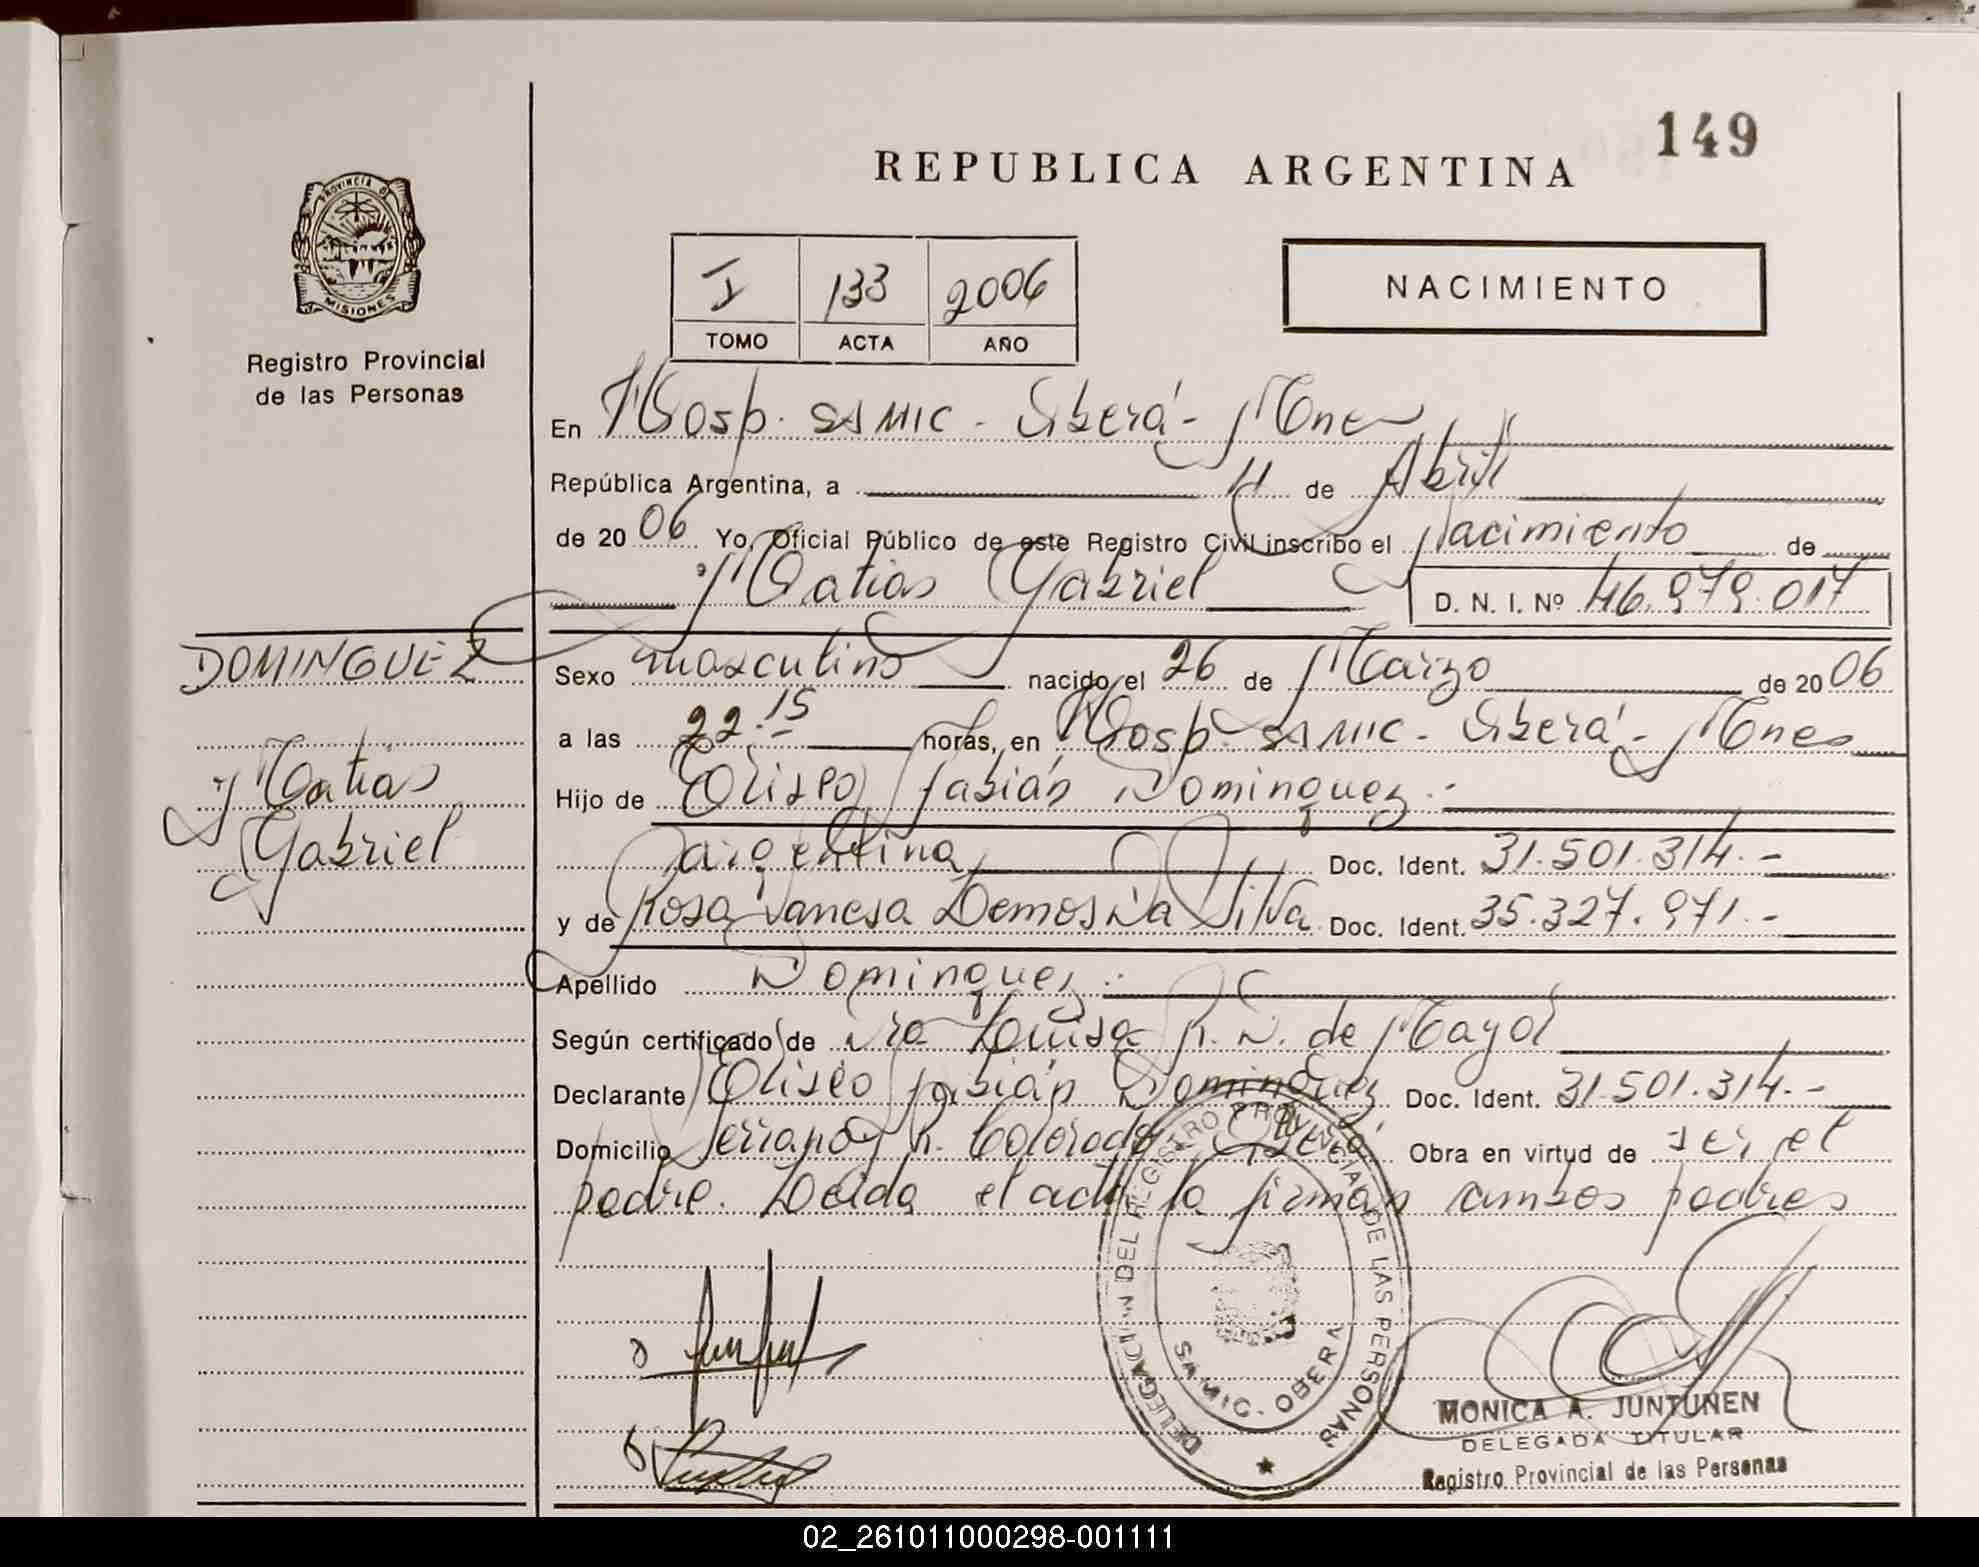 149
REPUBLICA ARGENTINA
PROVINCIA D
MISIONES
Registro Provincial
de las Personas
I 133 2006
TOMO ACTA AÑO
NACIMIENTO
En Hosp. SAMIC - Oberá - Mnes
República Argentina, a 11 de Abril
de 2006 Yo, Oficial Público de este Registro Civil inscribo el nacimiento de
Matias Gabriel D. N. I. Nº 46.979.017
DOMINGUEZ
Matias
Gabriel
Sexo masculino nacido el 26 de Marzo de 2006
a las 22.15 horas, en Hosp. SAMIC - Oberá - Mnes
Hijo de Eliseo Fabián Dominguez.-
argentina Doc. Ident. 31.501.314.-
y de Rosa Vanesa Lemos Da Silva Doc. Ident. 35.327.971.-
Apellido Dominguez.
Según certificado de Dra Luisa R. D. de Mayol
Declarante Eliseo Fabián Dominguez Doc. Ident. 31.501.314.-
Domicilio Serrano y R. Colorado Oberá Obra en virtud de ser el
padre. Leída el acta la firman ambos padres
DELEGACION DEL REGISTRO PROVINCIAL DE LAS PERSONAS
SAMIC - OBERA
MONICA A. JUNTUNEN
DELEGADA TITULAR
Registro Provincial de las Personas
02_261011000298-001111